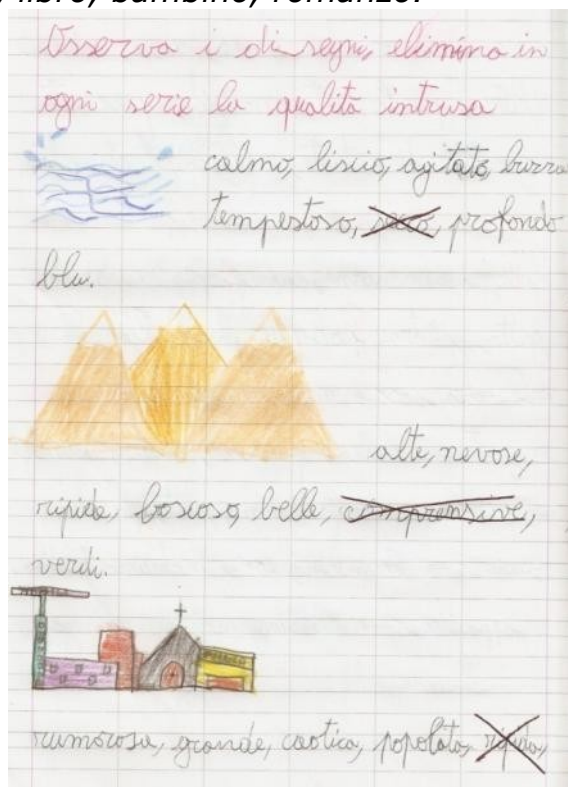 libro, bambino, romanzo.
Osserva i disegni, elimina in
ogni serie la qualità intrusa
calmo, liscio, agitato,
tempestoso, secco, profondo
blu.
alte, nevose,
ripide, boscose, belle, comprensive,
verdi.
rumorosa, grande, caotica, popolata, ripida,